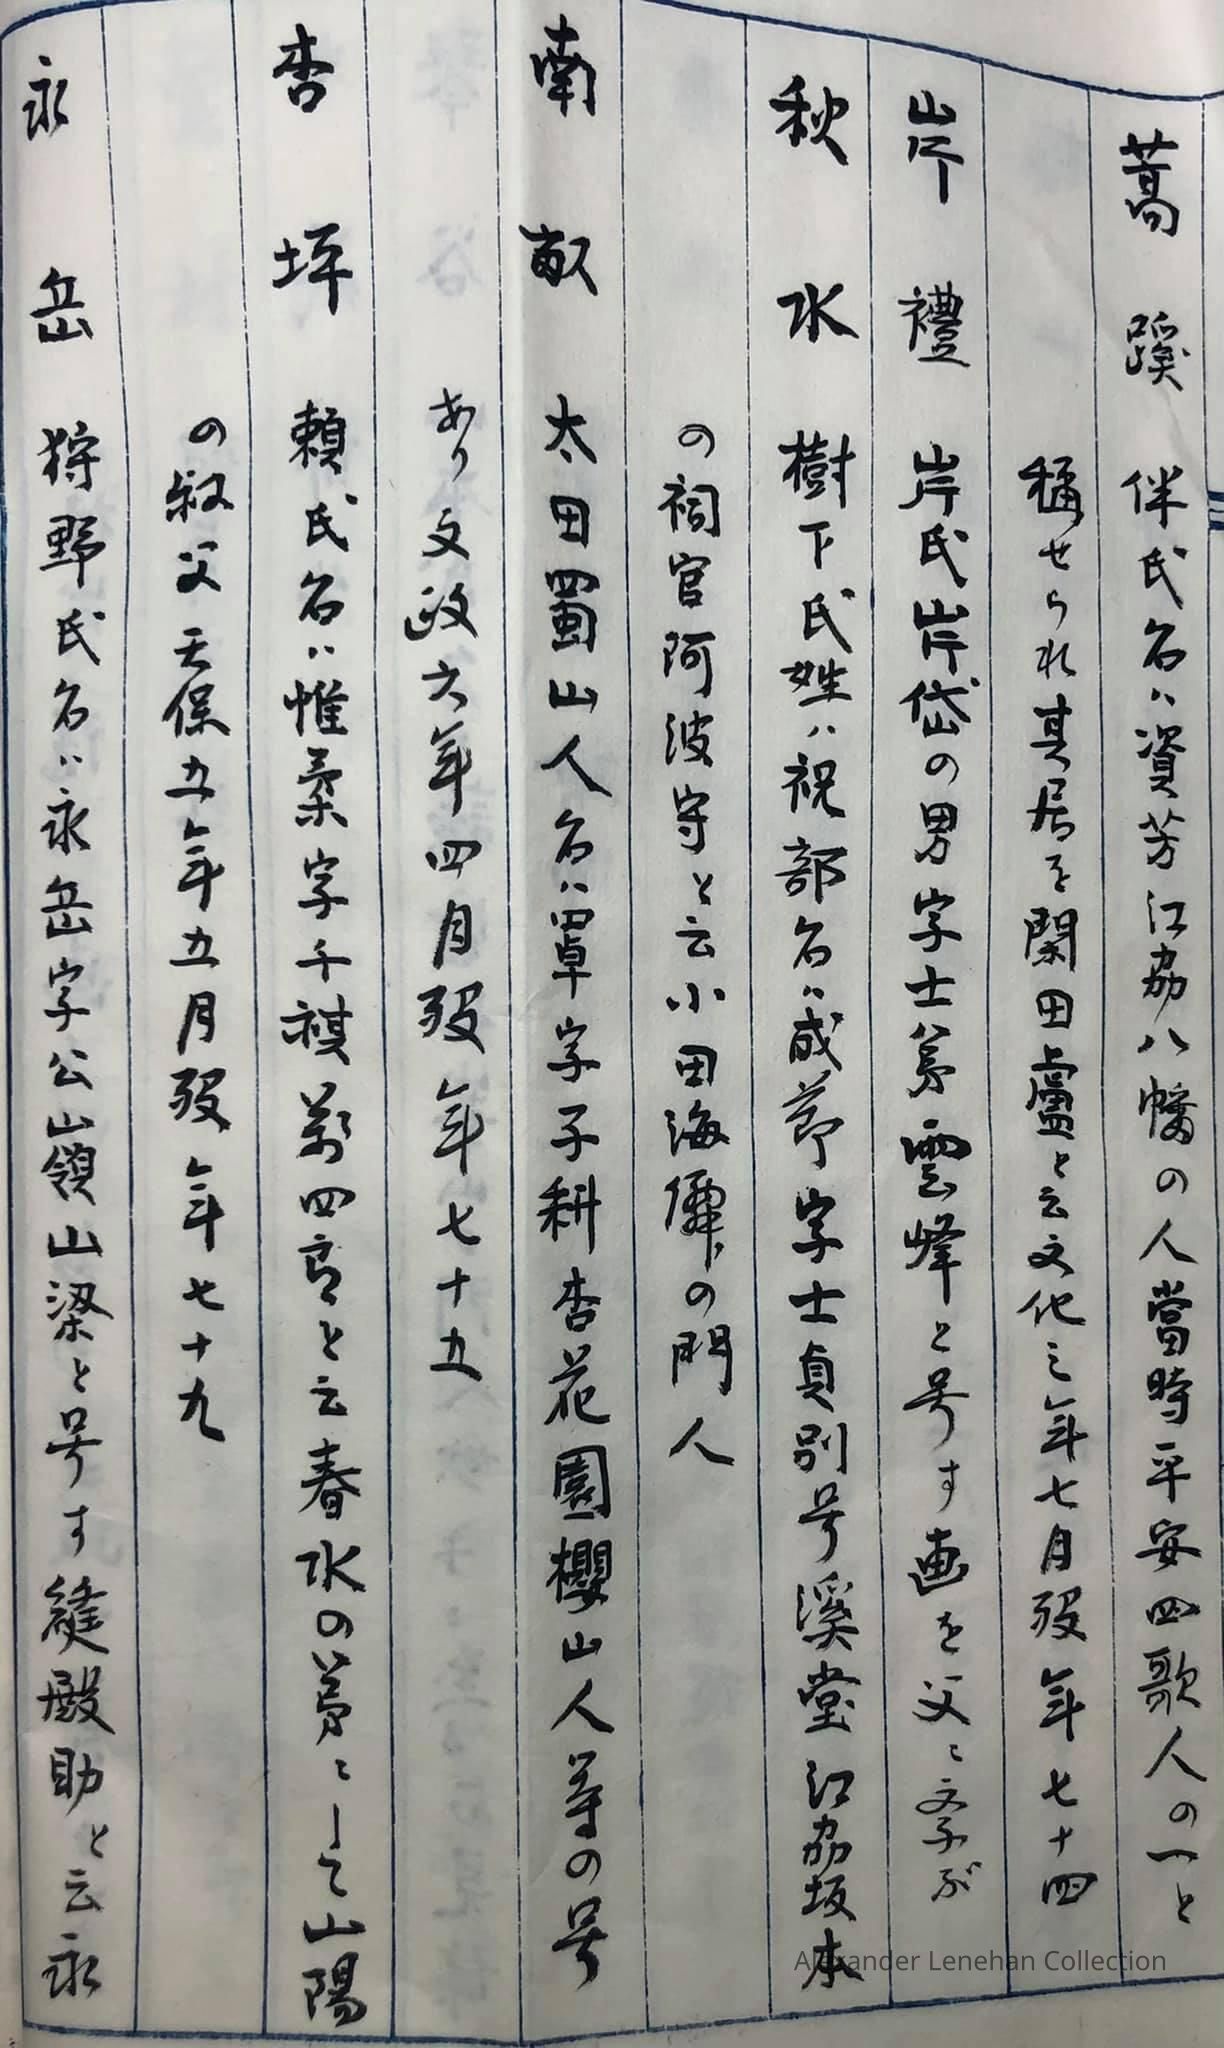 蒿蹊 伴氏名ハ資芳江州八幡の人當時平安四歌人の一と
稱せられ其居を閑田盧と云文化三年七月歿年七十四
岸禮 岸氏岸岱の男字士弟雲峰と号す画を父ニ学ぶ
秋水 樹下氏姓ハ祝部名ハ成節字士貞別号溪堂江州坂本
の祠官阿波守と云小田海僊の門人
南畝 太田蜀山人名ハ覃字子耕杏花園櫻山人等の号
あり文政六年四月歿年七十五
杏坪 頼氏名ハ惟柔字千祺萬四郎と云春水の弟ニして山陽
の叔父天保五年五月歿年七十九
永岳 狩野氏名ハ永岳字公嶺山梁と号す縫殿助と云永
Alexander Lenehan Collection